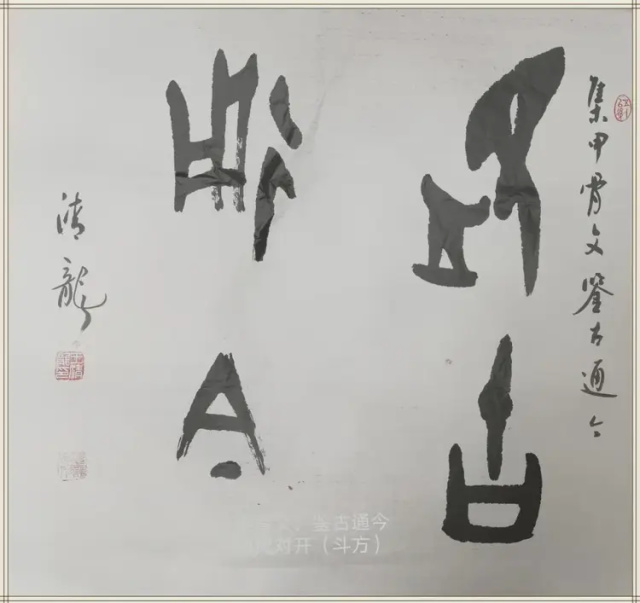 集甲骨文鉴古通今
鉴古
通今
清龙
鉴古通今
对开（斗方）